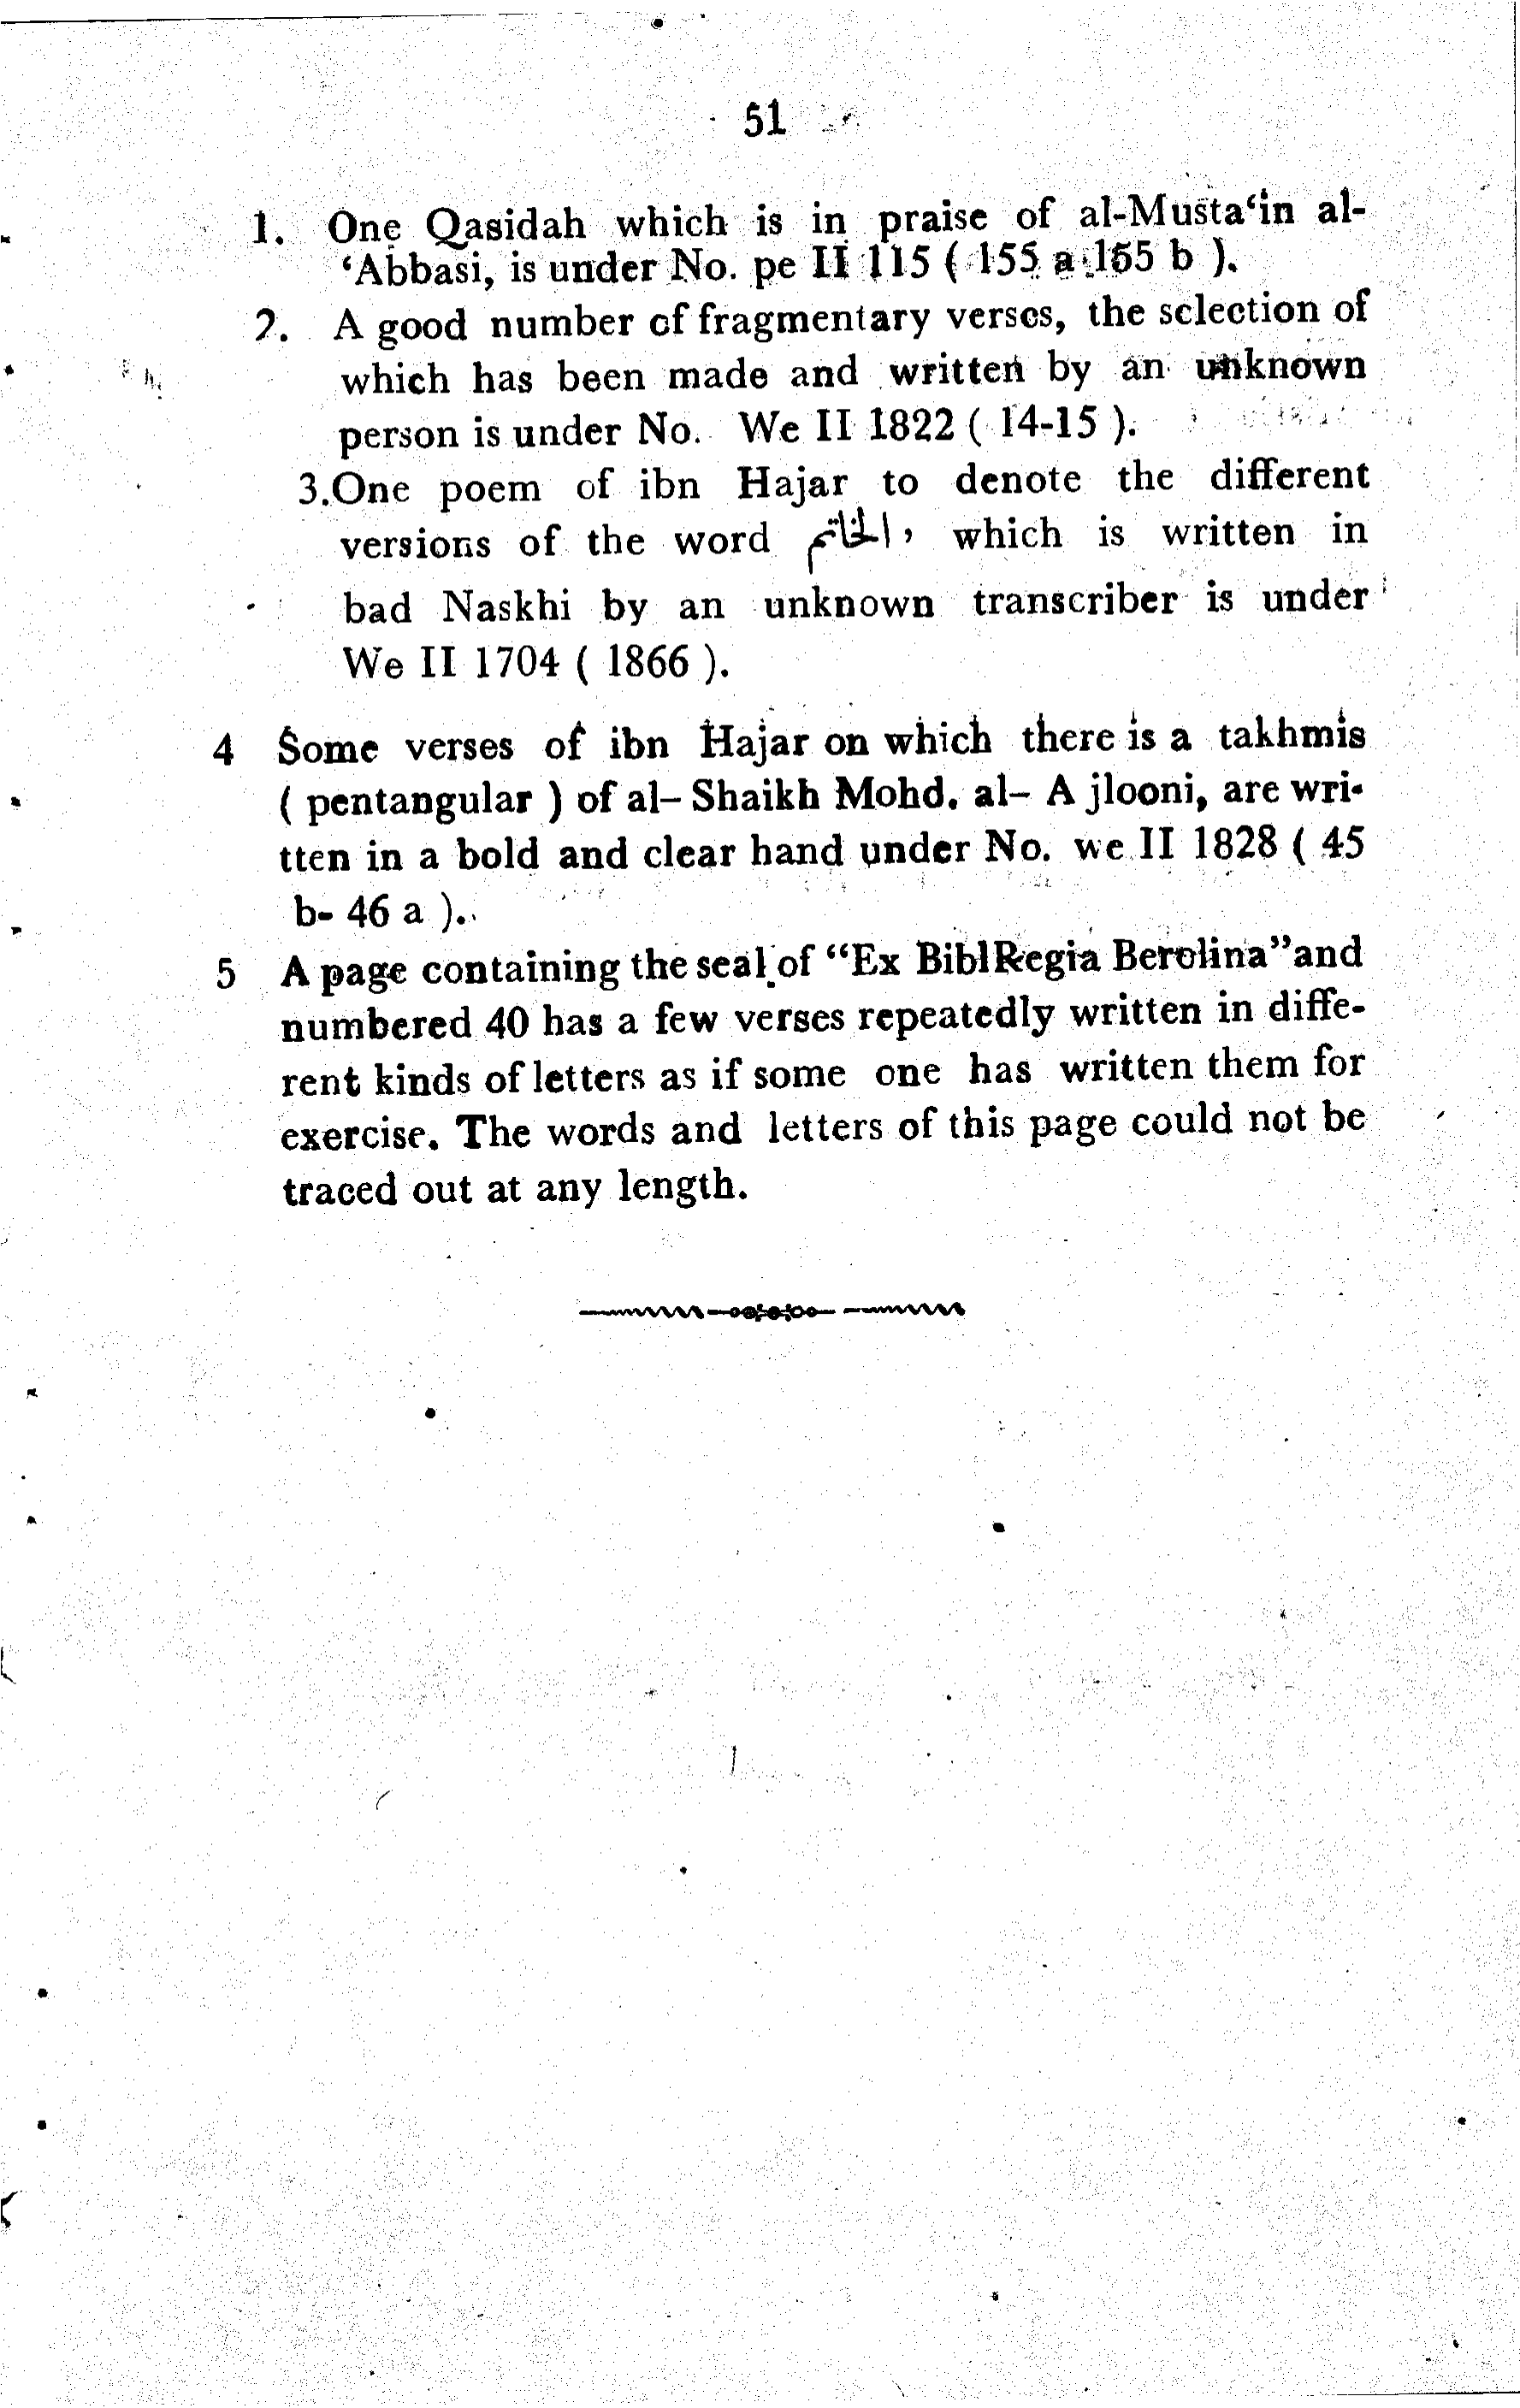 51
1. One Qasidah which is in praise of al-Musta‘in al-
‘Abbasi, is under No. pe II 115 ( 155 a 155 b ).
2. A good number of fragmentary verses, the selection of
which has been made and written by an unknown
person is under No. We II 1822 ( 14-15 ).
3.One poem of ibn Hajar to denote the different
versions of the word الخاتم, which is written in
bad Naskhi by an unknown transcriber is under
We II 1704 ( 1866 ).
4 Some verses of ibn Hajar on which there is a takhmis
( pentangular ) of al– Shaikh Mohd. al– A jlooni, are wri-
tten in a bold and clear hand under No. we II 1828 ( 45
b- 46 a ).
5 A page containing the seal of “Ex BiblRegia Berolina”and
numbered 40 has a few verses repeatedly written in diffe-
rent kinds of letters as if some one has written them for
exercise. The words and letters of this page could not be
traced out at any length.